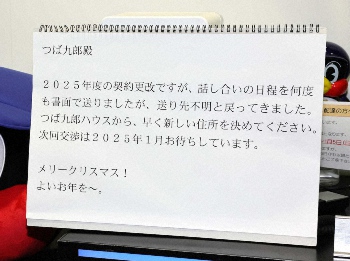 つば九郎殿
2025年度の契約更改ですが、話し合いの日程を何度
も書面で送りましたが、送り先不明と戻ってきました。
つば九郎ハウスから、早く新しい住所を決めてください。
次回交渉は2025年1月お待ちしています。
メリークリスマス！
よいお年を〜。